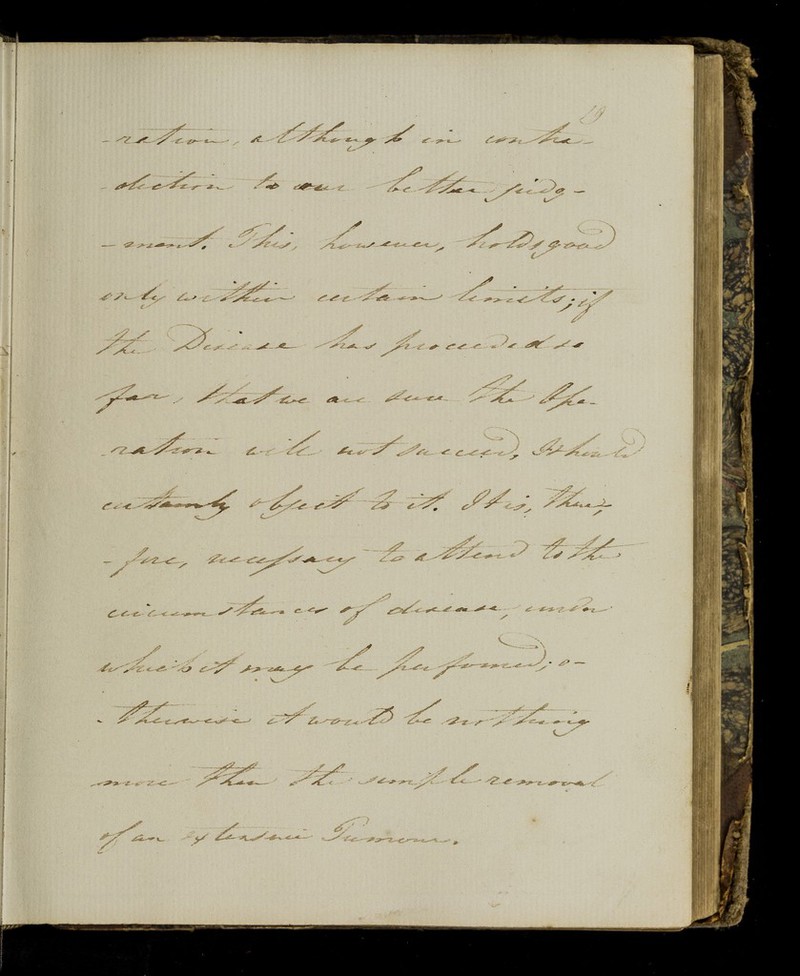 19
-ration, although in contra-
-diction to our better judg-
-ment. This, however, holds good
only within certain limits; if
the Disease has proceeded so
far, that we are sure the Ope-
-ration will not succeed, I should
certainly object to it. It is, there-
-fore, necessary to attend to the
circumstances of disease, under
which it may be performed; o-
-therwise it would be nothing
more than the simple removal
of an extensive Tumour.